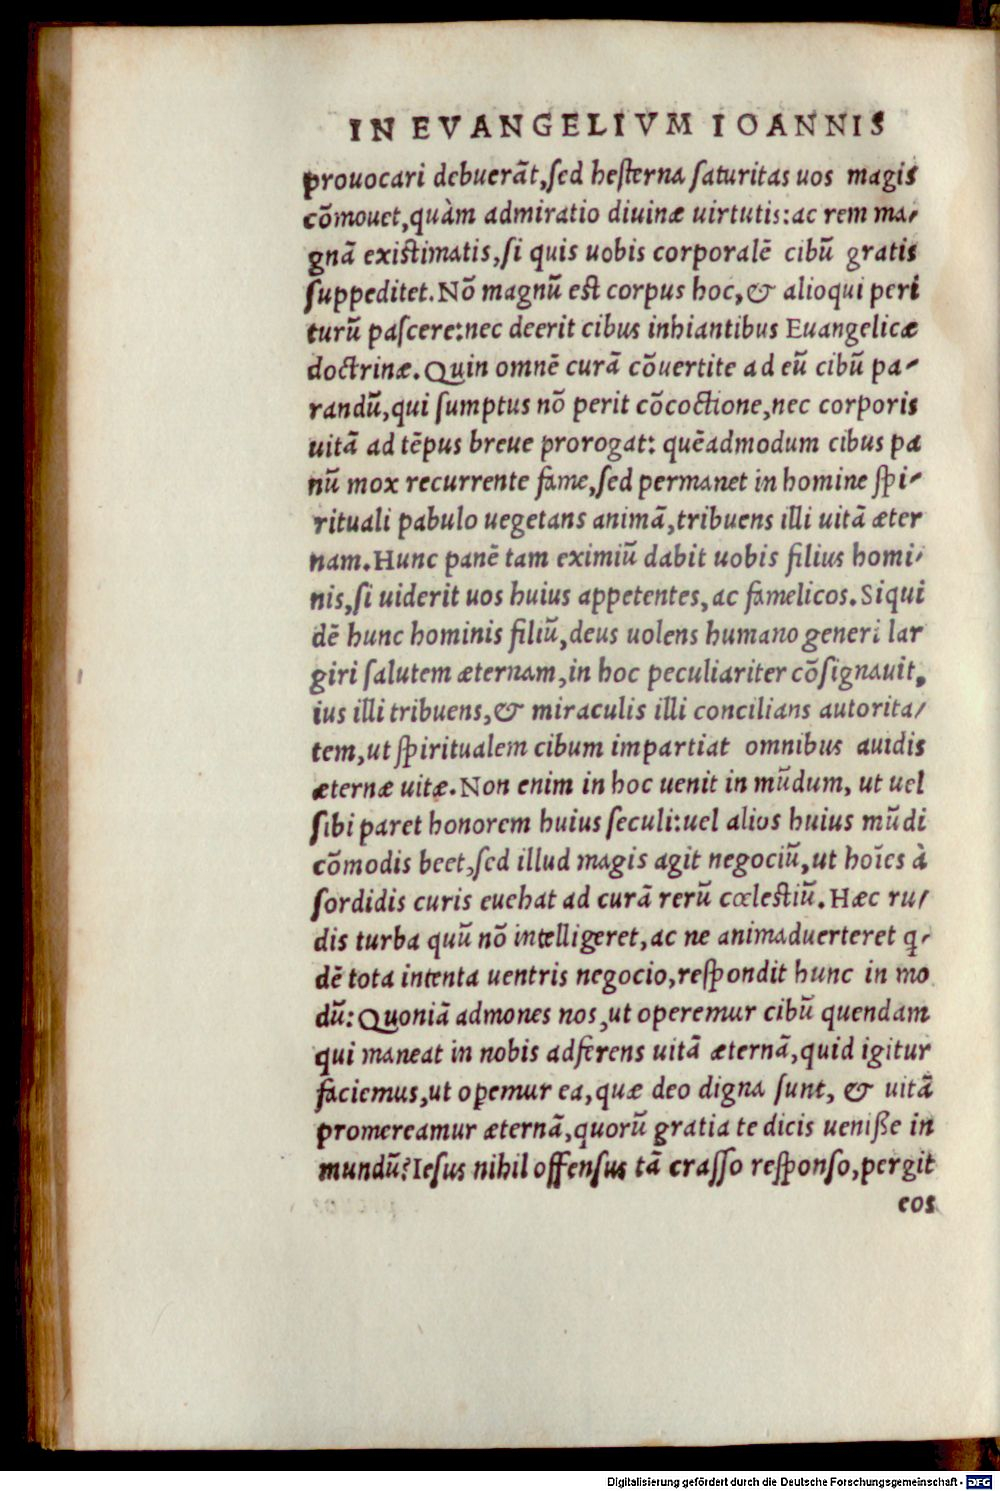 IN EVANGELIVM IOANNIS
prouocari debuerāt,ſed heſterna ſaturitas uos magis
cōmouet,quàm admiratio diuinæ uirtutis:ac rem ma-
gnā existimatis,ſi quis uobis corporalē cibū gratis
ſuppeditet.Nō magnū est corpus hoc,& alioqui peri
turū paſcere:nec deerit cibus inhiantibus Euangelicæ
doctrinæ.Quin omnē curā cōuertite ad eū cibū pa-
randū,qui ſumptus nō perit cōcoctione,nec corporis
uitā ad tēpus breue prorogat: quēadmodum cibus pa
nū mox recurrente fame,ſed permanet in homine ſpi-
rituali pabulo uegetans animā,tribuens illi uitā æter
nam.Hunc panē tam eximiū dabit uobis filius homi-
nis,ſi uiderit uos huius appetentes,ac famelicos.Siqui
dē hunc hominis filiū,deus uolens humano generi lar
giri ſalutem æternam,in hoc peculiariter cōſignauit,
ius illi tribuens,& miraculis illi concilians autorita-
tem,ut ſpiritualem cibum impartiat omnibus auidis
æternæ uitæ.Non enim in hoc uenit in mūdum, ut uel
ſibi paret honorem huius ſeculi:uel alios huius mūdi
cōmodis beet,ſed illud magis agit negociū,ut hoīes à
ſordidis curis euehat ad curā rerū cœlestiū.Hæc ru-
dis turba quū nō intelligeret,ac ne animaduerteret q̣-
dē tota intenta uentris negocio,reſpondit hunc in mo
dū:Quoniā admones nos,ut operemur cibū quendam
qui maneat in nobis adferens uitā æternā,quid igitur
faciemus,ut oꝑemur ea,quæ deo digna ſunt, & uitā
promereamur æternā,quorū gratia te dicis ueniße in
mundū?Ieſus nihil offenſus tā craſſo reſponſo,pergit
eos
Digitalisierung gefördert durch die Deutsche Forschungsgemeinschaft - DFG